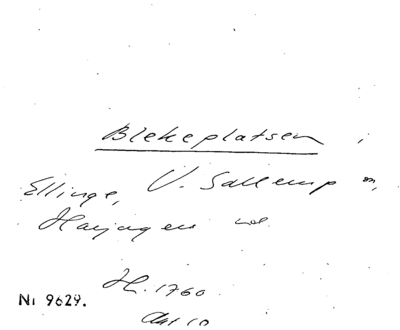 Blekeplatsen i
Ellinge, V. Sallerup sn,
Harjagers hd
H. 1760
Nr 9629.